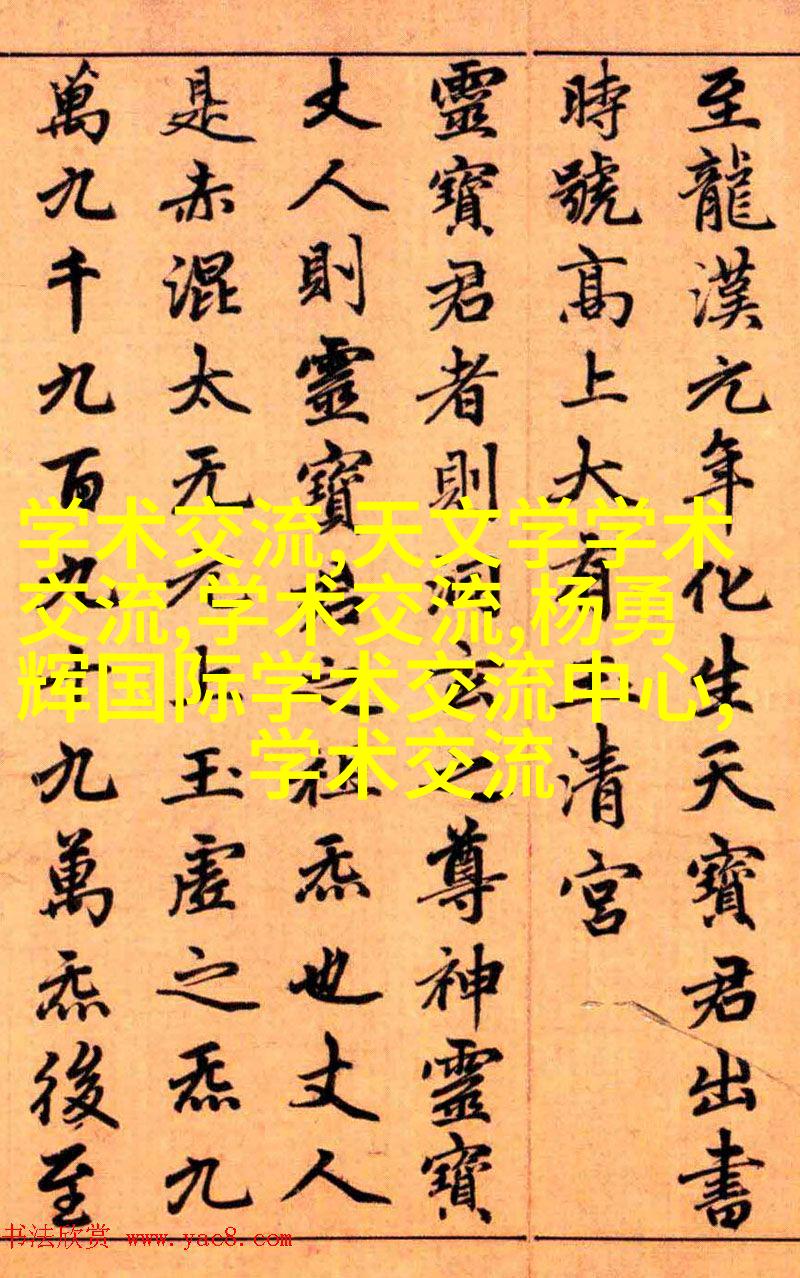 至龍漢元年化生天寶君出書
時號髙上大有玉清宮
靈寶君者則洞玄之尊神靈寶
丈人則靈寶君之祖炁也丈人
是赤混太无元上玉虛之炁九
萬九千九百九十九萬炁後至
学术交流,天文学学术
交流,学术交流,杨勇
辉国际学术交流中心,
学术交流
书法欣赏 www.yac8.com